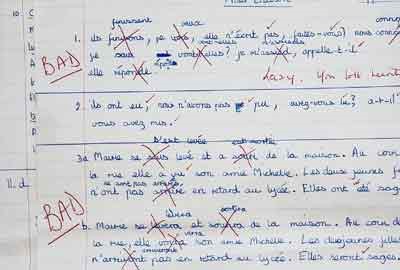 finissent veux
1. ils finissons, je vois, elle n'écrit pas, faites-vous? nous
BAD
je sais vont-elles? je m'assied, appelle-t-il
elle réponde Lazy.
2. ils ont eu, nous n'avons pas pu, avez-vous lu? a-t-il
vous avez mis.
s'est levée est sortie
3a Marie se suis levé et a sorti de la maison. Au cour
la rue elle a vu son amie Michelle. Les deux jeunes
ne sont pas arrivés
n'ont pas arrivé en retard au lycée. Elles ont été sages
11.d.
BAD
lèvera sortira
b. Marie se levera et sortira de la maison. Au cour de
verra
la rue, elle voira son amie Michelle. Les deux jeunes filles
n'arrivont pas en retard au lycée. Elles seront sages.